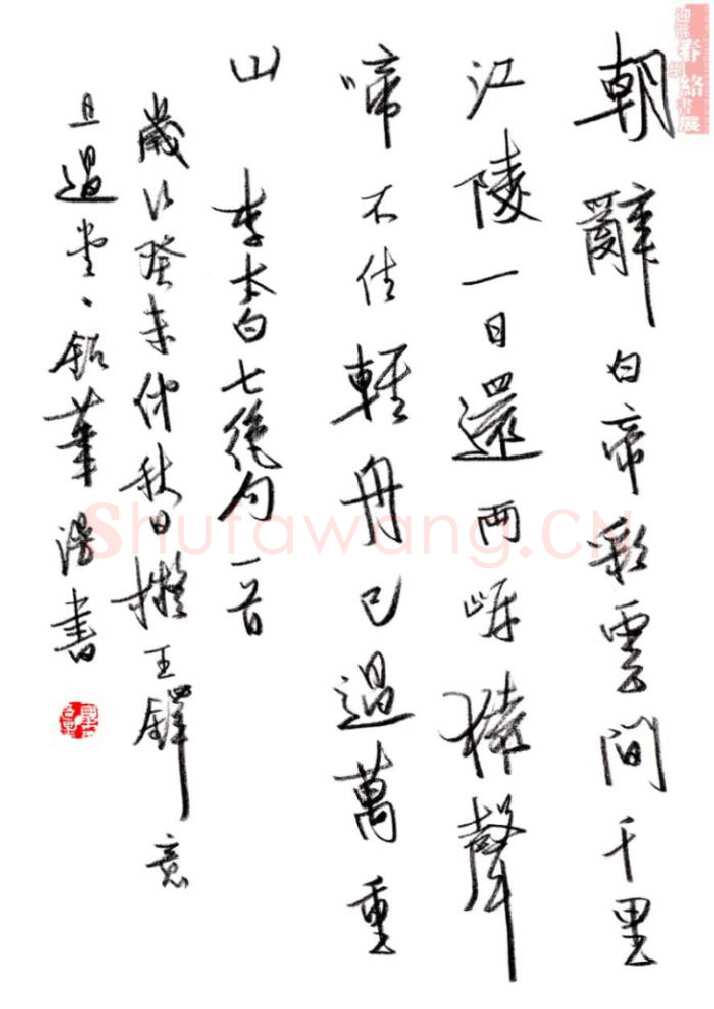 朝辭白帝彩雲間千里
江陵一日還兩岸猿聲
啼不住輕舟已過萬重
山
李太白七絕句一首
歲次癸未仲秋日擬王鐸意
過堂鉛筆漫書
Shufawang.CN
絡書展